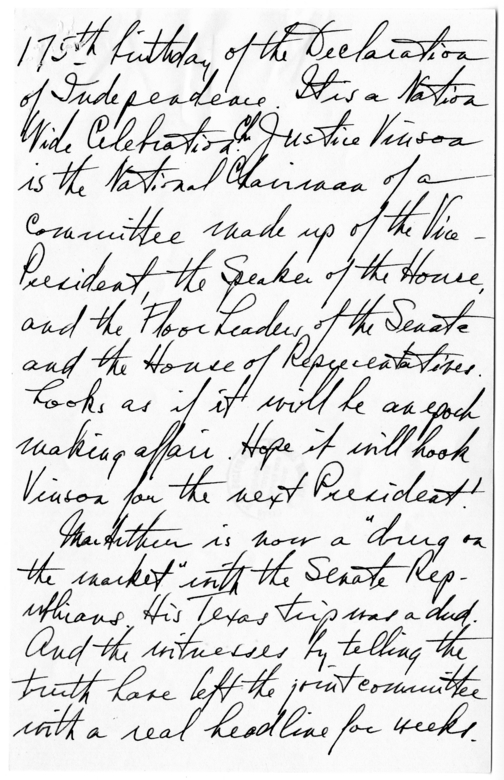 175th birthday of the Declaration
of Independence. It is a Nation
Wide Celebration. Ch. Justice Vinson
is the National Chairman of a
committee made up of the Vice-
President, the Speaker of the House,
and the Floor Leaders, of the Senate
and the House of Representatives.
Looks as if it will be an epoch
making affair. Hope it will hook
Vinson for the next President!
MacArthur is now a "drug on
the market" with the Senate Rep-
ublicans. His Texas trip was a dud.
And the witnesses by telling the
truth have left the joint committee
with a real headline for weeks.